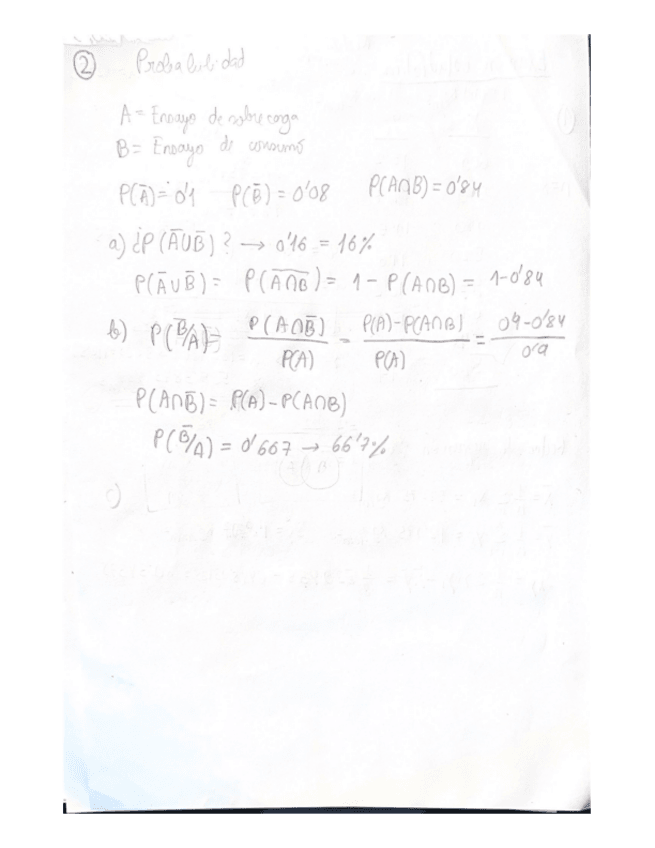 ② Probabilidad
A = Ensayo de sobrecarga
B = Ensayo de consumo
P(A̅) = 0'1 P(B̅) = 0'08 P(A∩B) = 0'84
a) ¿P(A̅∪B̅)? → 0'16 = 16%
P(A̅∪B̅) = P(A̅∩̅B̅) = 1 - P(A∩B) = 1-0'84
b) P(B̅/A) = P(A∩B̅)/P(A) = P(A)-P(A∩B)/P(A) = 0'9-0'84/0'9
P(A∩B̅) = P(A)-P(A∩B)
P(B̅/A) = 0'667 → 66'7%
c)